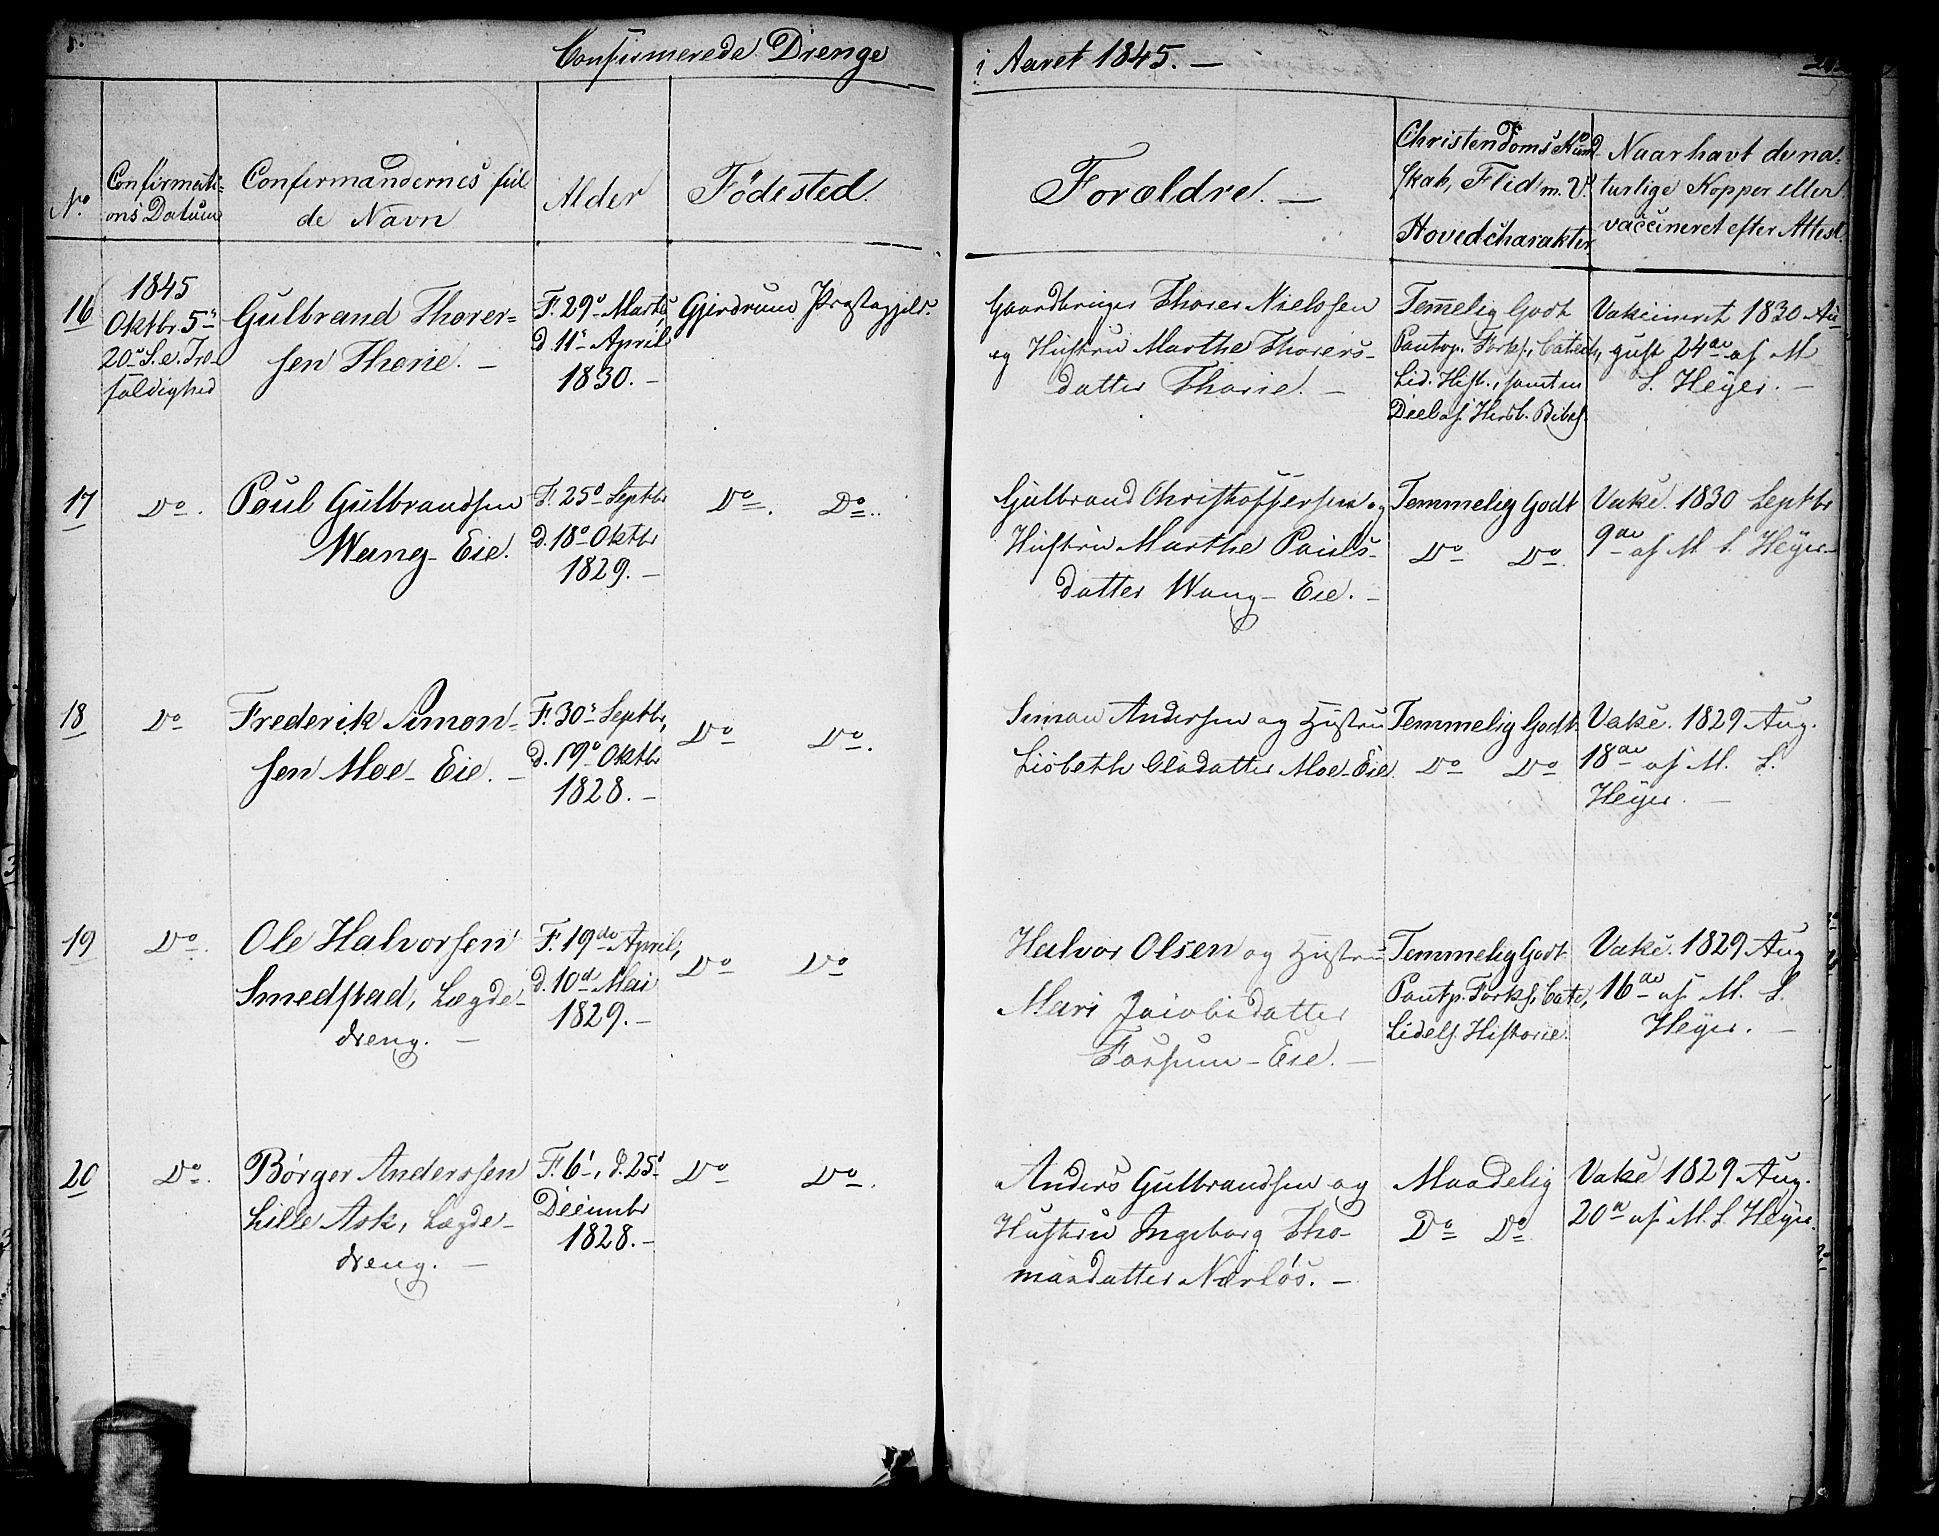 Confirmerede Drenge
i Aaret 1845. —
No
Confirmati-
ons Datum
Confirmandernes ful
de Navn
Alder
Fødested.
Forældre. —
Christendoms Kund-
skab, Flid m. V.
Hovedcharakter.
Naar havt de na-
turlige Kopper eller
vaccineret efter Attest.
16
1845
Oktbr. 5te
20de S. e. Tre-
foldighed
Gulbrand Thorer-
sen Thorie. —
F. 29de Marts
d. 11te April
1830. —
Gjerdrum Præstegjeld.
Gaardbruger Thorer Nielssen
og Hustru Marthe Thorers-
datter Thorie. —
Temelig Godt
Pantop. Forkl., Catech.,
Lid. Hist., samt en
Deel af Hersl. Bibel.
Vakcineret 1830 Au-
gust 24de af M
L. Heyer. —
17
Do.
Poul Gulbrandsen
Wang-Eie.
F. 25de Septbr
d. 18de Oktbr
1829. —
Do. Do.
Gulbrand Christhoffersen og
Hustru Marthe Pouls-
datter Wang-Eie. —
Temmelig Godt
Do Do.
Vakc. 1830 Septbr
9de af M. L. Heyer—
18
Do
Frederik Simon-
sen Moe-Eie. —
F. 30te Septbr,
d. 19de Oktbr
1828. —
Do Do.
Simon Andersen og Hustru
Lisbeth Olsdatter Moe-Eie.
Temmelig Godt.
Do Do
Vakc. 1829 Aug.
18de af M. L.
Heyer. —
19
Do.
Ole Halvorsen
Smedstad, Lægde-
dreng. —
F. 19de April,
d. 10de Mai
1829. —
Do Do
Halvor Olsen og Hustru
Mari Jacobsdatter
Forsum-Eie. —
Temmelig Godt
Pantp. Forkl, Cate,
Lidels. Historie.
Vakc. 1829 Aug
16de af M. L.
Heyer. —
20
Do.
Børger Anderssen
Lille Ask, Lægde-
dreng. —
F. 6te, d. 25de
Decembr
1828. —
Do Do.
Anders Gulbrandsen og
Hustru Ingeborg Tho-
masdatter Nærløs. —
Maadelig
Do Do
Vakc 1829 Aug.
20de af M. L. Heyer.